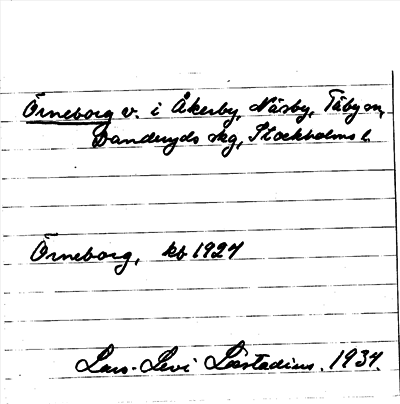 Örneborg v. i Åkerby, Näsby, Täby sn,
Danderyds skg, Stockholms l.
Örneborg, kb 1927
Lars-Levi Læstadius. 1934.